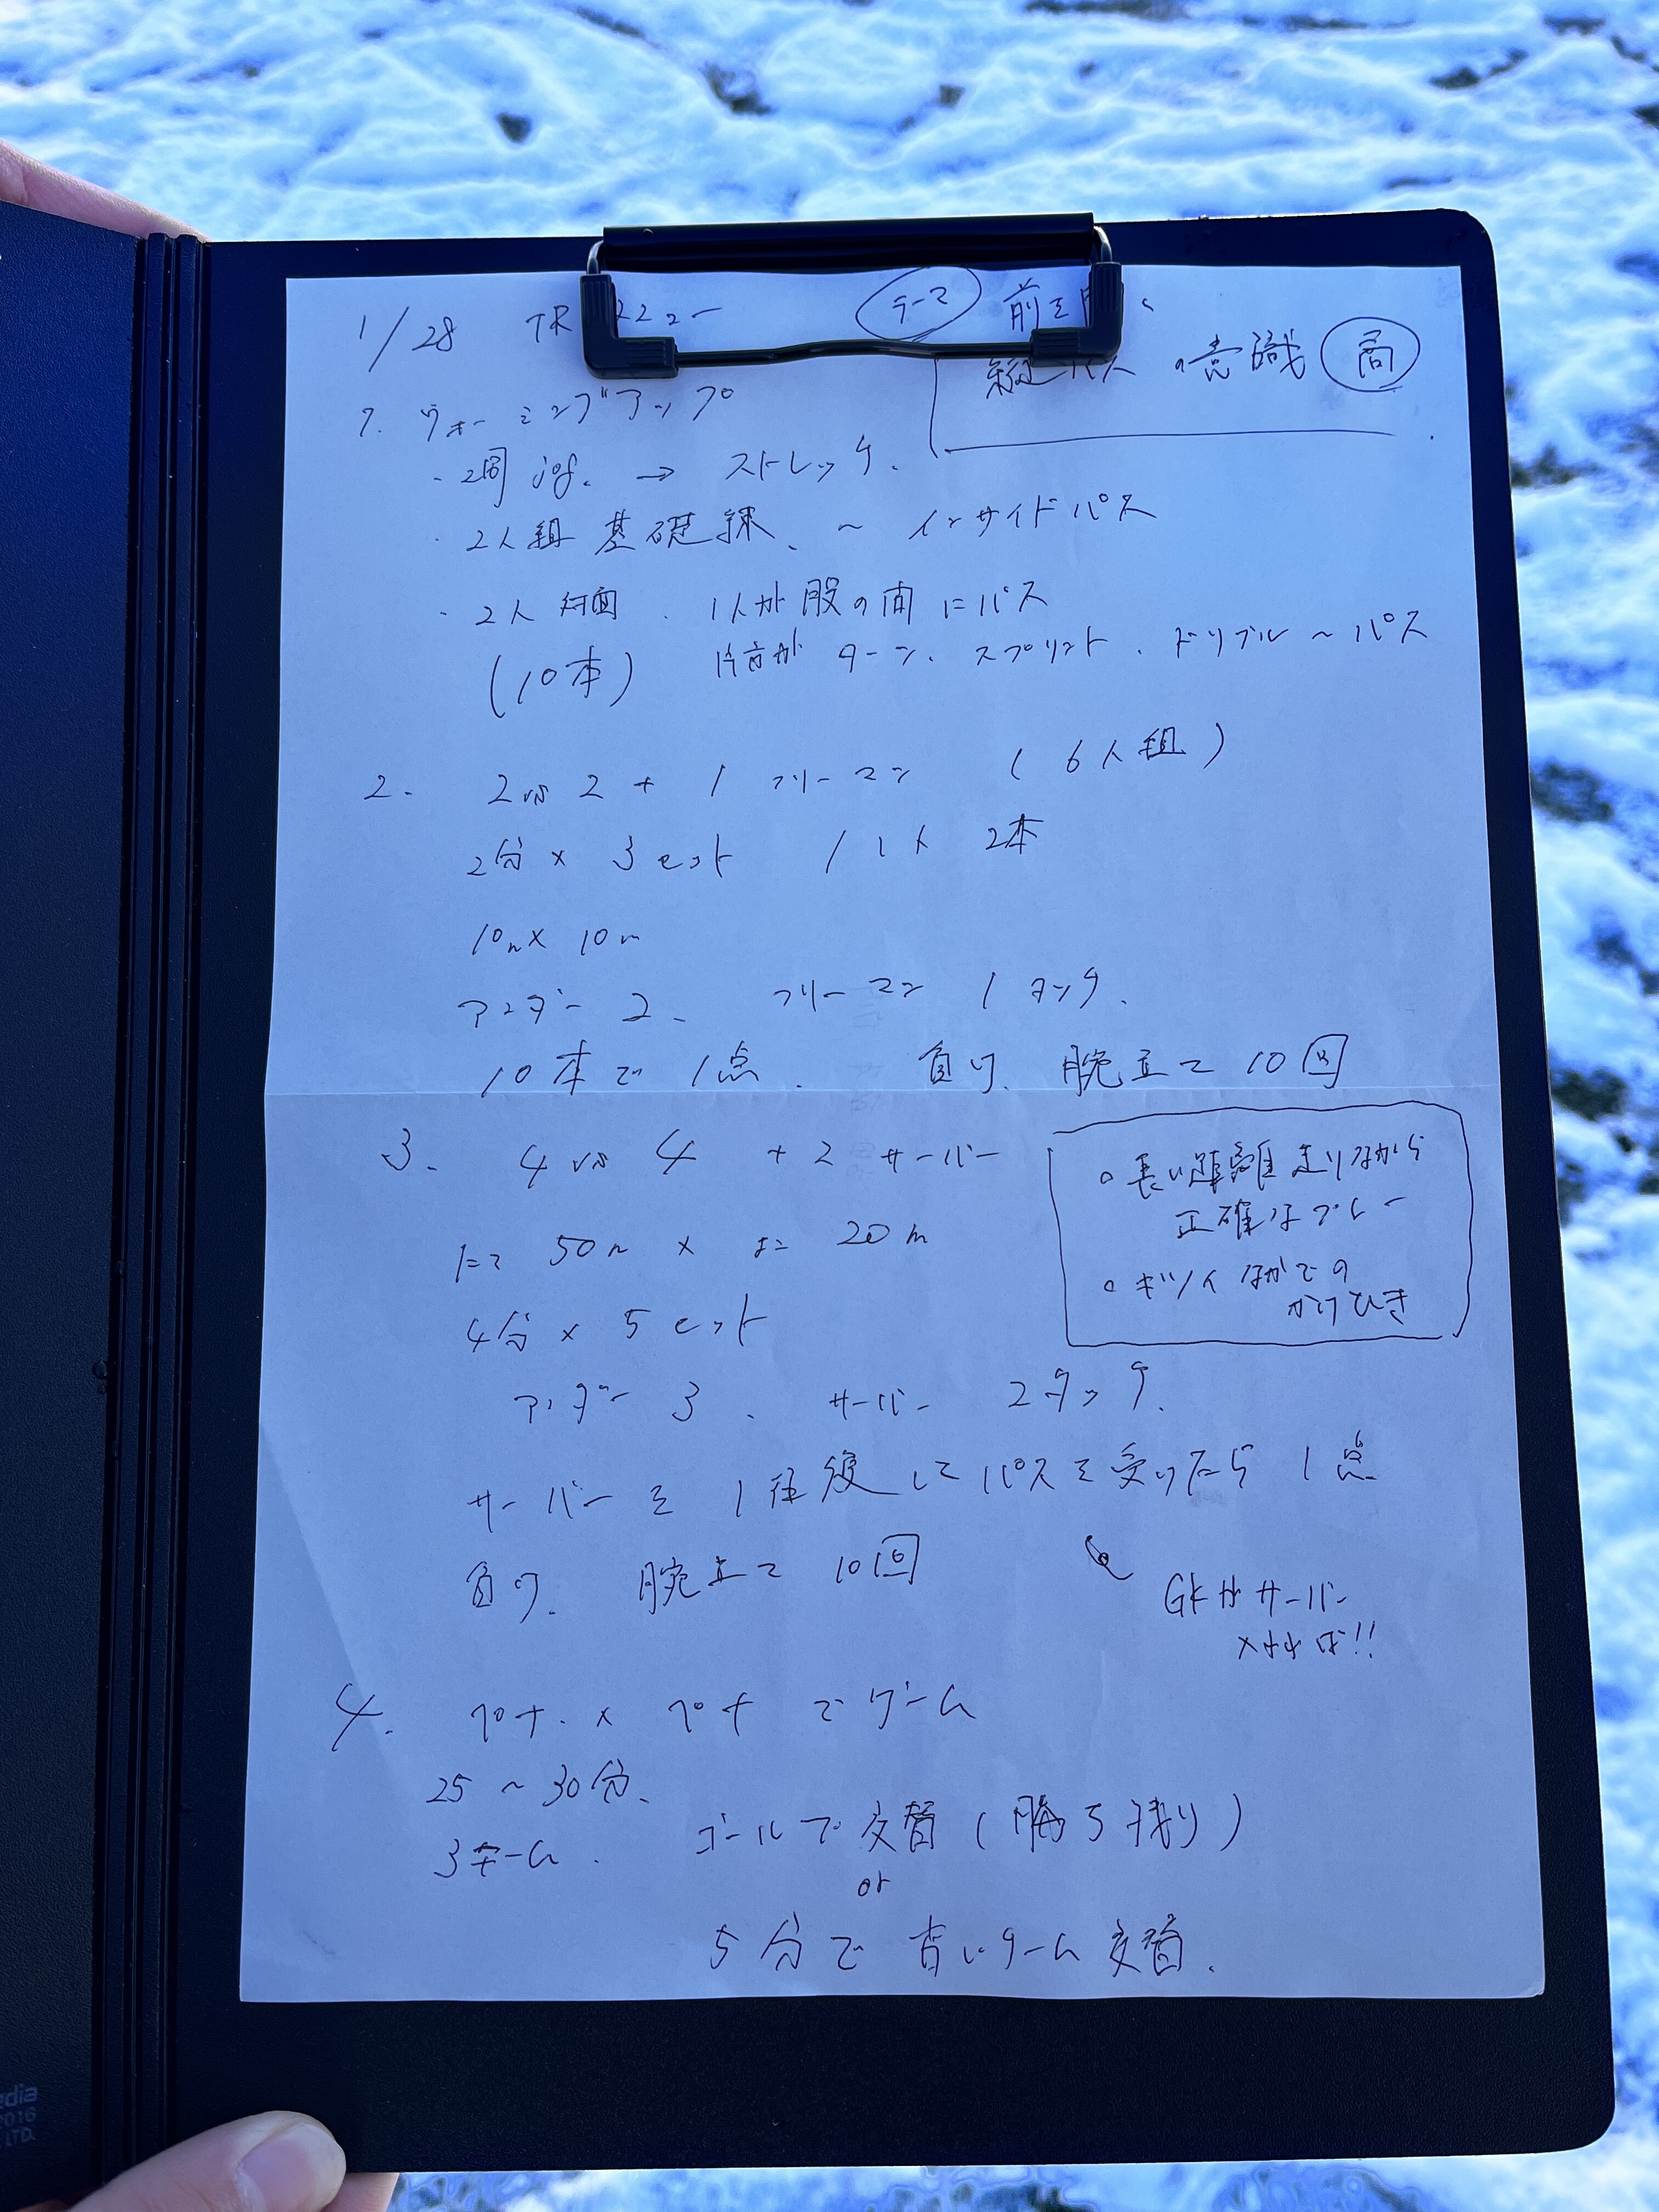 1/28 TR メニュー テーマ 前を
縦パス の意識 高
1. ウォーミングアップ
・2周 jog. → ストレッチ.
・2人組 基礎練、 ~ インサイドパス
・2人 対面 . 1人が 股の間にパス
(10本) 片方が ターン、スプリント、ドリブル~パス
2. 2 vs 2 + 1 フリーマン (6人組)
2分 × 3セット / 1人 2本
10m × 10m
アンダー 2、 フリーマン 1タッチ.
10本で 1点. 負け、腕立て 10回
3. 4 vs 4 + 2 サーバー
たて 50m × よこ 20m
4分 × 5セット
アンダー 3 . サーバー 2タッチ.
サーバーを 1往復してパスを受けたら 1点
負け. 腕立て 10回
○長い距離走りながら
正確なプレー
○キツイなかでの
かけひき
GKがサーバー
×れば!!
4. ペナ. × ペナ でゲーム
25 ~ 30分.
3チーム. ゴールで交替 (勝ち残り)
or
5分で 古いチーム 交替.
edia
2016
LTD.